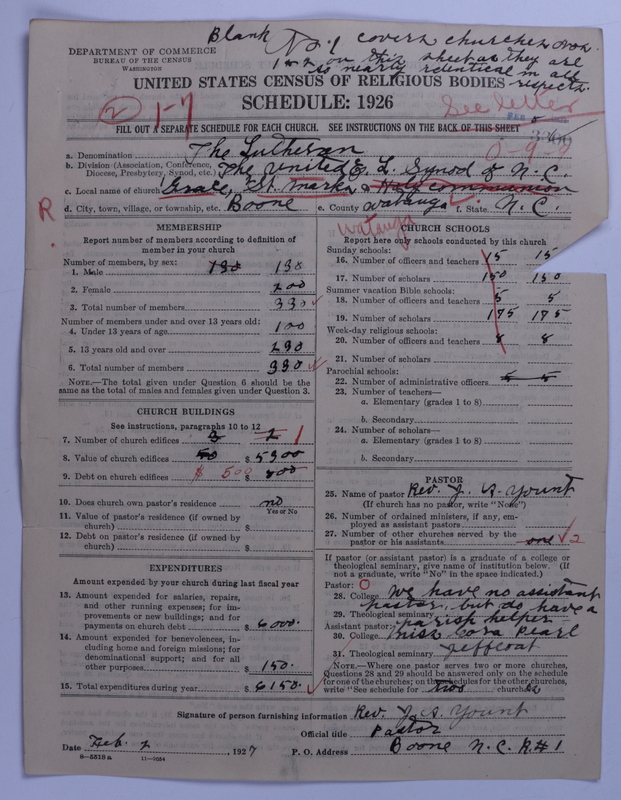 Blank No. 1 covers churches nos.
1 & 2 on this sheet as they are
so nearly identical in all
respects.
DEPARTMENT OF COMMERCE
BUREAU OF THE CENSUS
WASHINGTON
UNITED STATES CENSUS OF RELIGIOUS BODIES
SCHEDULE: 1926
2 1-7
See letter
FILL OUT A SEPARATE SCHEDULE FOR EACH CHURCH. SEE INSTRUCTIONS ON THE BACK OF THIS SHEET
FEB
0-9
a. Denomination The Lutheran
b. Division (Association, Conference, Diocese, Presbytery, Synod, etc.) The United E. L. Synod of N. C.
c. Local name of church Grace, St. Marks & Holy communion
d. City, town, village, or township, etc. Boone e. County Watauga f. State N. C.
R.
Watauga
MEMBERSHIP
Report number of members according to definition of
member in your church
Number of members, by sex:
1. Male 130 130
2. Female 200
3. Total number of members 330
Number of members under and over 13 years old:
4. Under 13 years of age 100
5. 13 years old and over 230
6. Total number of members 330
NOTE.—The total given under Question 6 should be the
same as the total of males and females given under Question 3.
CHURCH BUILDINGS
See instructions, paragraphs 10 to 12
7. Number of church edifices 3 2 1
8. Value of church edifices $ 5900
9. Debt on church edifices $ 500 $ 800
10. Does church own pastor's residence no
Yes or No
11. Value of pastor's residence (if owned by
church) $
12. Debt on pastor's residence (if owned by
church) $
EXPENDITURES
Amount expended by your church during last fiscal year
13. Amount expended for salaries, repairs,
and other running expenses; for im-
provements or new buildings; and for
payments on church debt $ 6000.
14. Amount expended for benevolences, in-
cluding home and foreign missions; for
denominational support; and for all
other purposes $ 150.
15. Total expenditures during year $ 6150.
CHURCH SCHOOLS
Report here only schools conducted by this church
Sunday schools:
16. Number of officers and teachers 15 15
17. Number of scholars 150 150
Summer vacation Bible schools:
18. Number of officers and teachers 5 5
19. Number of scholars 175 175
Week-day religious schools:
20. Number of officers and teachers 8 8
21. Number of scholars
Parochial schools:
22. Number of administrative officers 5 5
23. Number of teachers—
a. Elementary (grades 1 to 8)
b. Secondary
24. Number of scholars—
a. Elementary (grades 1 to 8)
b. Secondary
PASTOR
25. Name of pastor Rev. J. A. Yount
(If church has no pastor, write "None")
26. Number of ordained ministers, if any, em-
ployed as assistant pastors
27. Number of other churches served by the
pastor or his assistants one 2
If pastor (or assistant pastor) is a graduate of a college or
theological seminary, give name of institution below. (If
not a graduate, write "No" in the space indicated.)
Pastor: 0
28. College We have no assistant
29. Theological seminary pastor, but do have a
Assistant pastor: parish helper
30. College Miss Cora Pearl
31. Theological seminary Jeffcoat
NOTE.—Where one pastor serves two or more churches,
Questions 28 and 29 should be answered only on the schedule
for one of the churches; on the schedules for the other churches,
write "See schedule for two church es
Signature of person furnishing information Rev. J. A. Yount
Official title Pastor
Date Feb. 2, 1927 P. O. Address Boone N. C. R#1
8—5518 a 11—9034